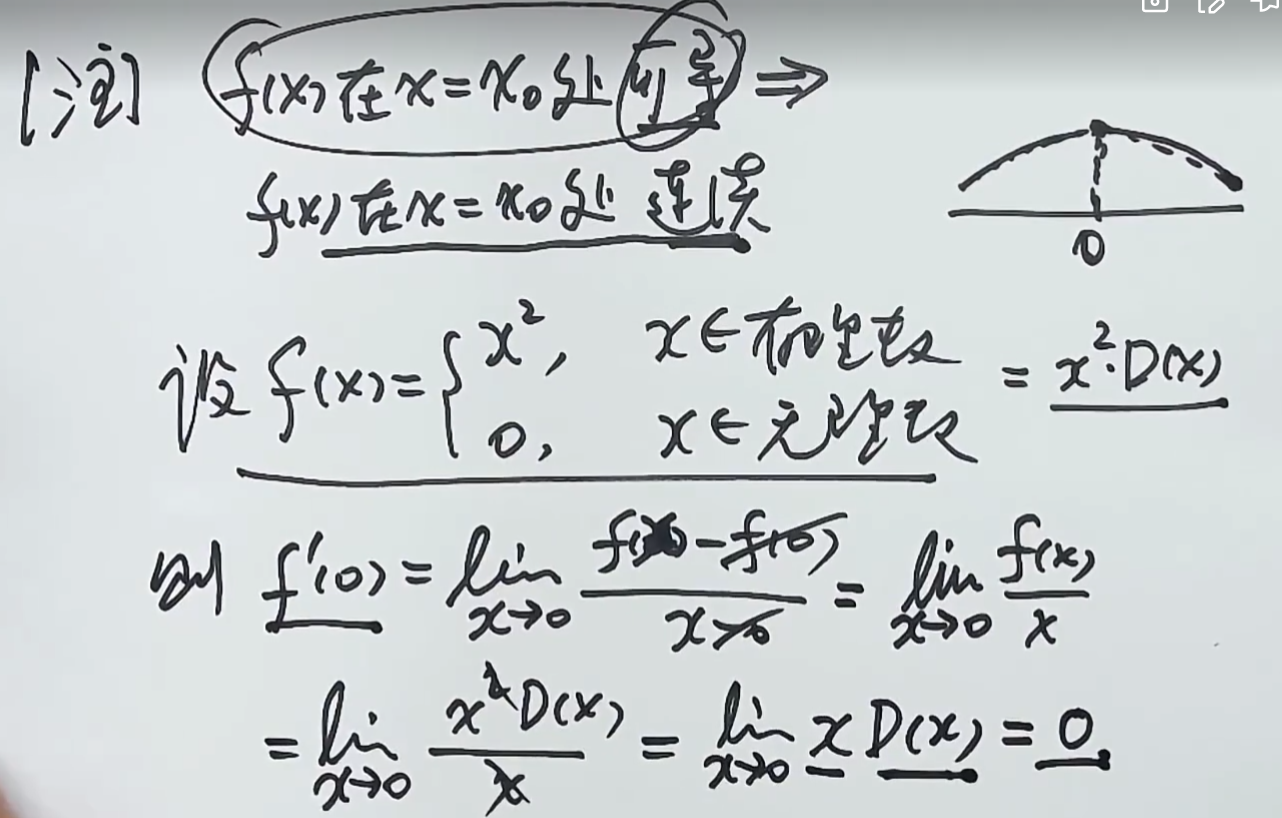 [注] f(x)在x=x₀处可导⇒
f(x)在x=x₀处连续
0
设f(x)={x², x∈有理数
0, x∈无理数 = x²·D(x)
则 f'(0)=lim x→0 (f(x)-f(0))/(x-0) = lim x→0 f(x)/x
=lim x→0 x²D(x)/x = lim x→0 xD(x)=0.